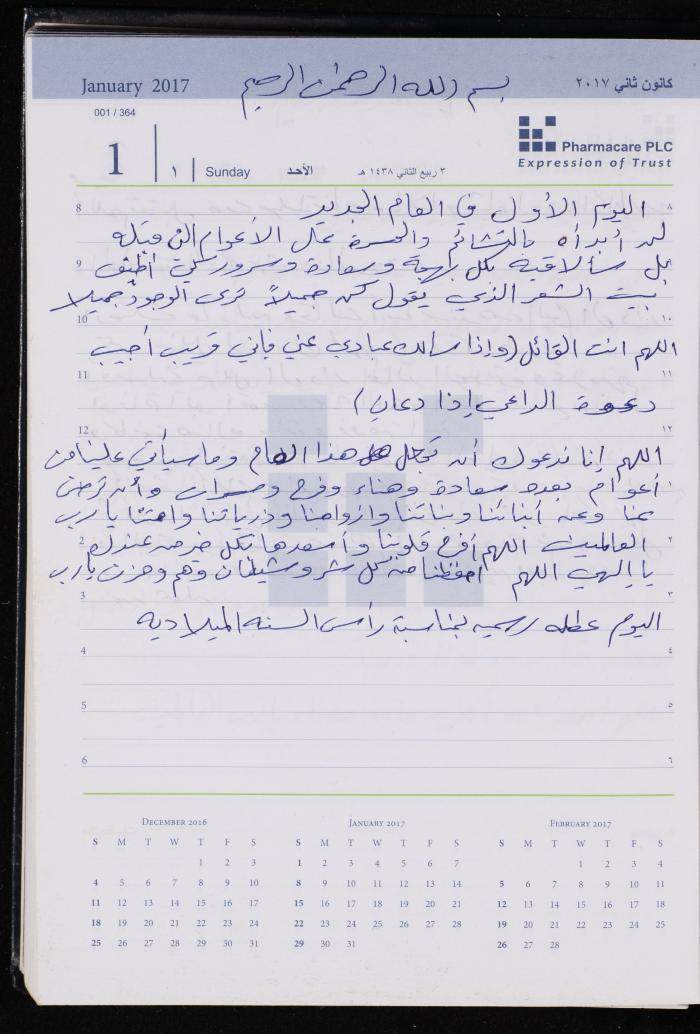 January 2017 بسم الله الرحمن الرحيم كانون ثاني ٢٠١٧
001 / 364
Pharmacare PLC
Expression of Trust
1 ١ Sunday الأحد ٣ ربيع الثاني ١٤٣٨ هـ
8 اليوم الأول في العام الجديد ٨
لن أبدأه بالتشائم والحسرة على الأعوام التي قبله
9 بل سألاقيه بكل بهجة وسعادة وسرور لكي أطبق
بيت الشعر الذي يقول كن جميلاً ترى الوجود جميلا
10 ١٠
اللهم انت القائل (وإذا سألك عبادي عني فإني قريب أجيب
11 ١١
دعوة الداعي إذا دعان)
12 ١٢
اللهم إنا ندعوك أن تجعل هذا العام وما سيأتي علينا من
أعوام بعده سعادة وهناء وفرح ومسرات وأن ترضى ١
عنا وعن أبنائنا وبناتنا وازواجنا وذرياتنا وامتنا يا رب
2 العالمين اللهم أفرح قلوبنا وأسعدها بكل فرحه عندك ٢
يا إلهي اللهم احفظنا من كل شر وشيطان وهم وحزن يا رب
3 ٣
اليوم عطله رسميه بمناسبة رأس السنه الميلاديه
4 ٤
5 ٥
6 ٦
December 2016
S M T W T F S
1 2 3
4 5 6 7 8 9 10
11 12 13 14 15 16 17
18 19 20 21 22 23 24
25 26 27 28 29 30 31
January 2017
S M T W T F S
1 2 3 4 5 6 7
8 9 10 11 12 13 14
15 16 17 18 19 20 21
22 23 24 25 26 27 28
29 30 31
February 2017
S M T W T F S
1 2 3 4
5 6 7 8 9 10 11
12 13 14 15 16 17 18
19 20 21 22 23 24 25
26 27 28